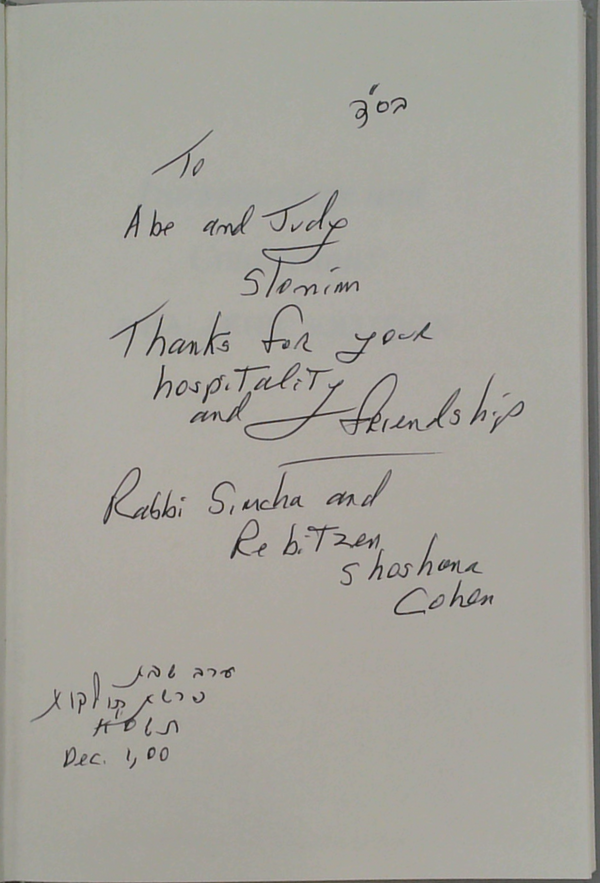 בס"ד
To
Abe and Judy
Slonim
Thanks for your
hospitality
and friendship
Rabbi Simcha and
Rebitzen
Shoshana
Cohen
ערב שבת
פרשת תולדות
תשס"א
Dec. 1, 00